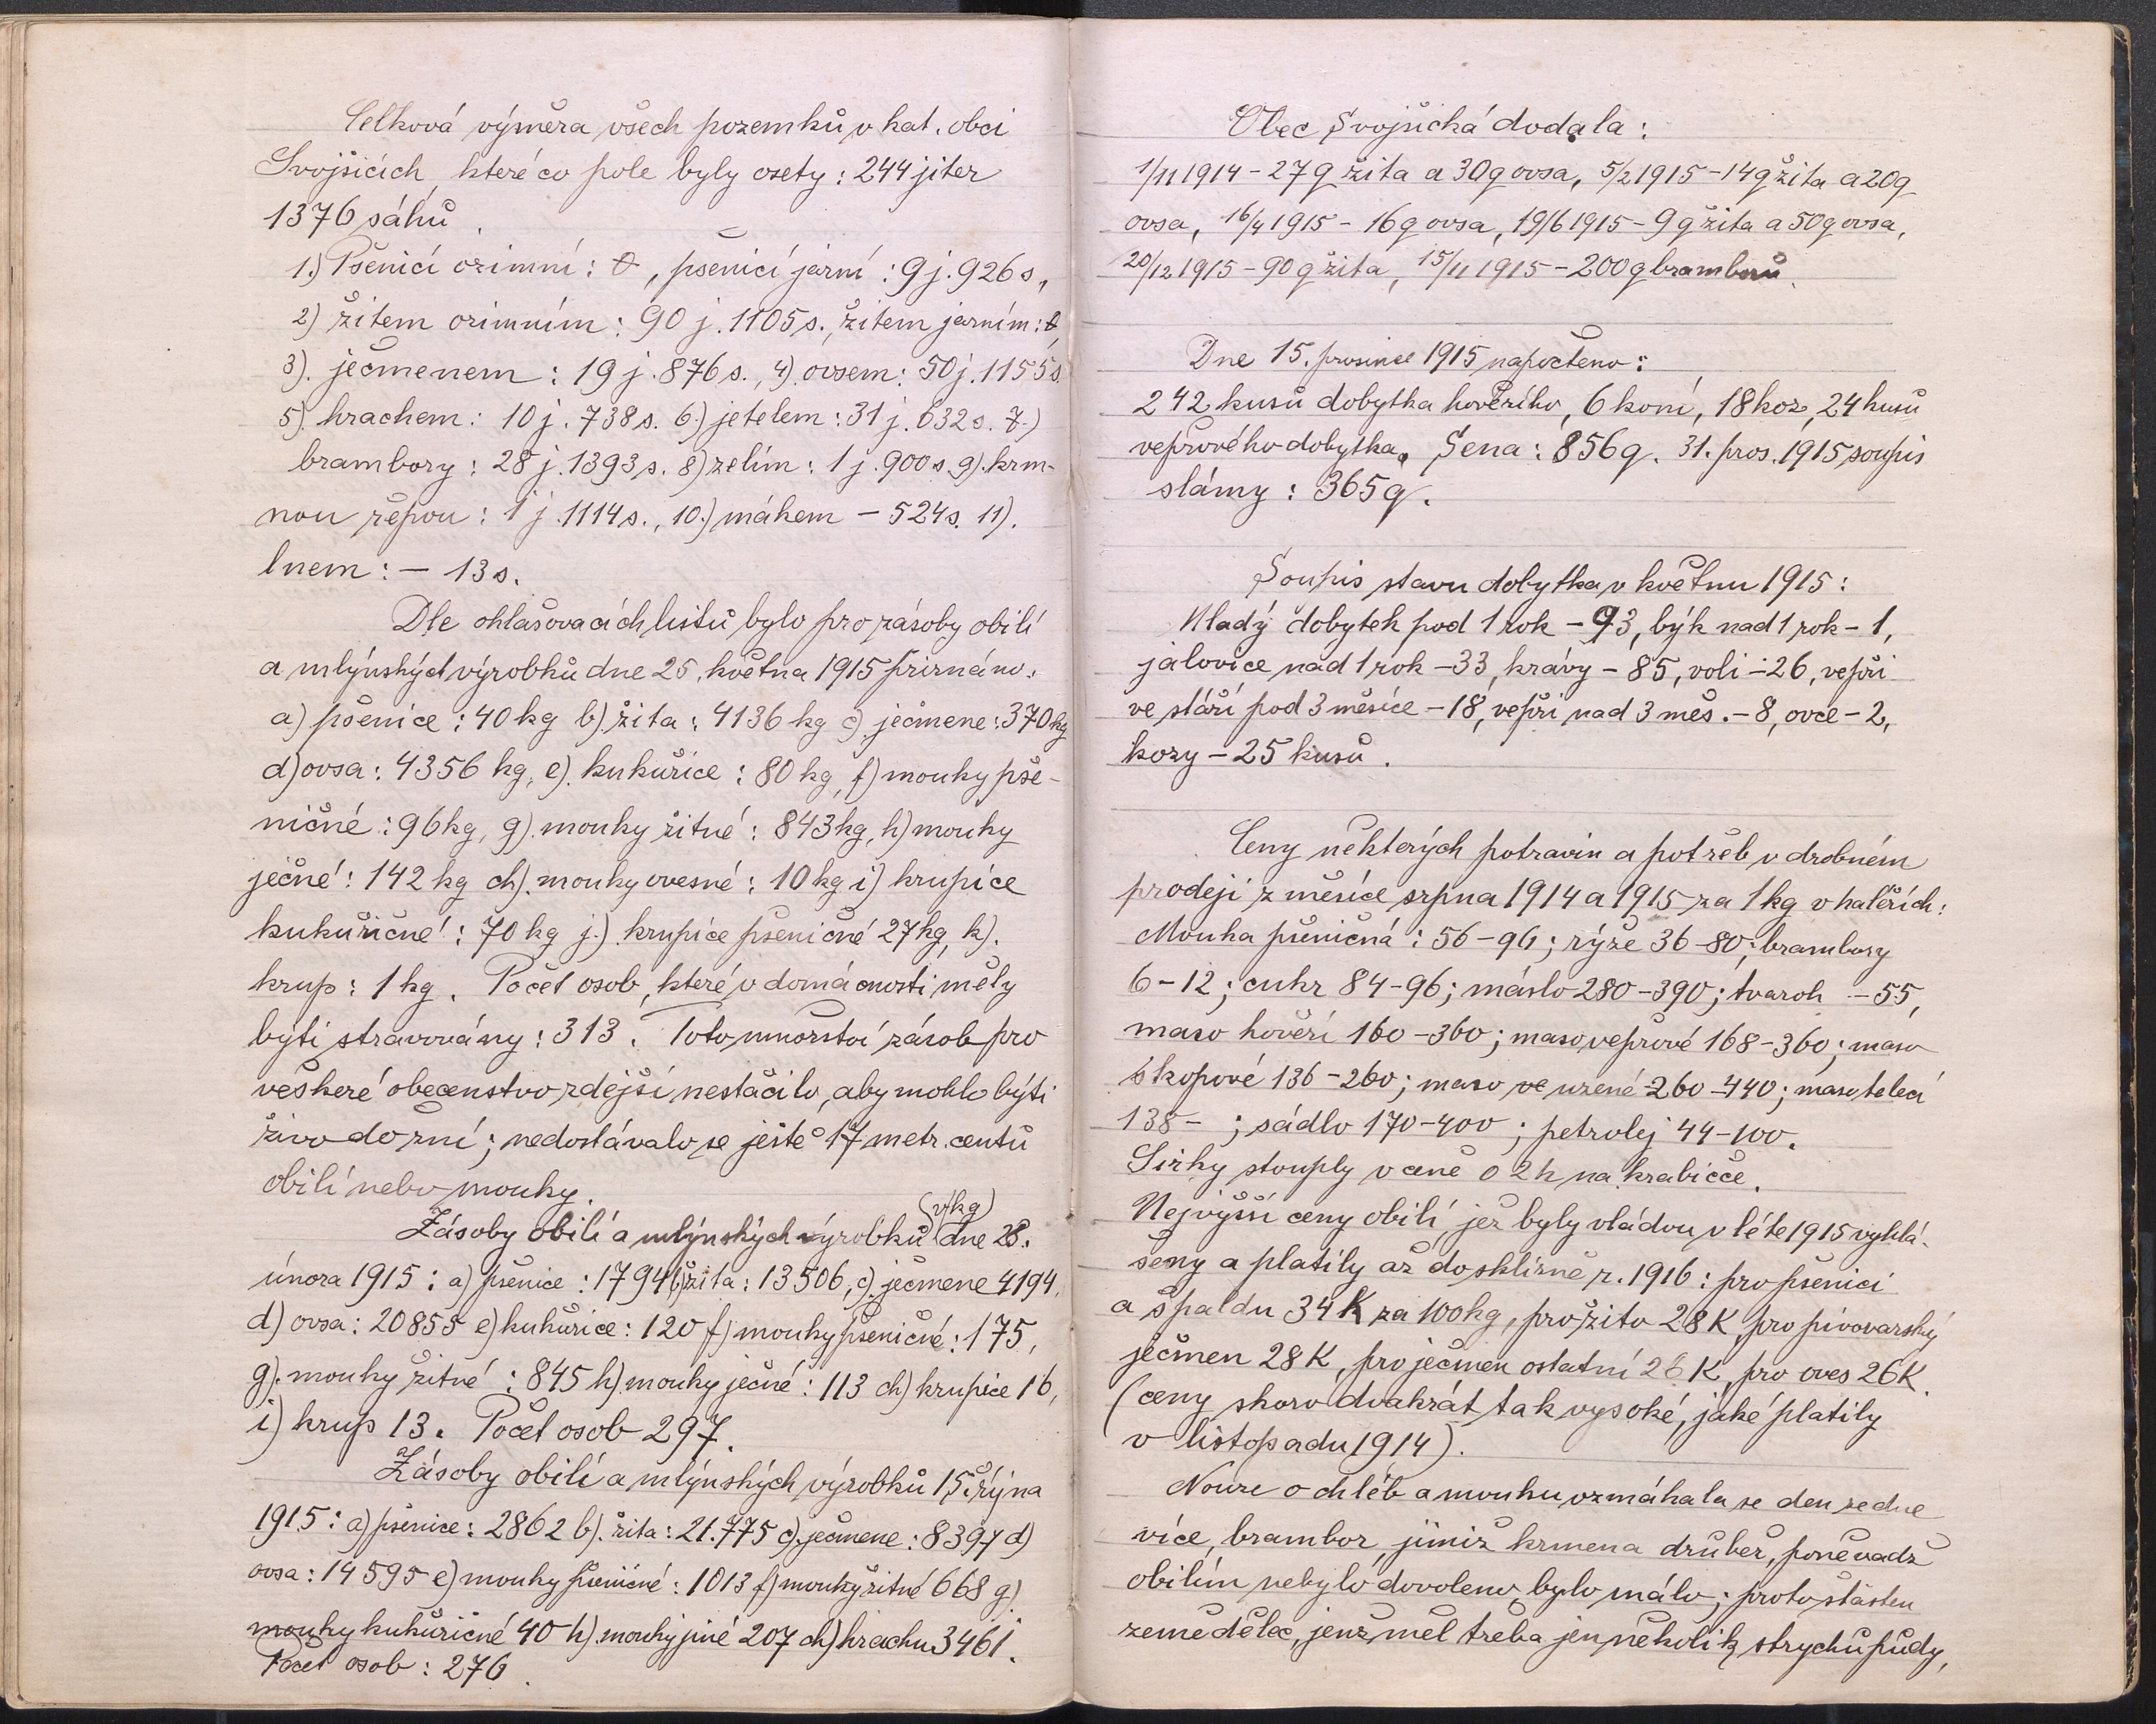 Celková výměra všech pozemků v kat. obci
Svojšicích, které co pole byly osety: 244 jiter
1376 sáhů.
1.) Pšenicí ozimní: 0, pšenicí jarní: 9 j. 926 s.,
2) žitem ozimním: 90 j. 1105 s., žitem jarním: 0,
3). ječmenem: 19 j. 876 s., 4). ovsem: 50 j. 1155 s.
5). hrachem: 10 j. 738 s. 6.) jetelem: 31 j. 632 s. 7.)
brambory: 28 j. 1393 s. 8) zelím: 1 j. 900 s. 9). krm-
nou řepou: 1 j. 1114 s., 10.) mákem - 524 s. 11).
lnem: - 13 s.
Dle ohlašovacích listů bylo pro zásoby obilí
a mlýnských výrobků dne 25. května 1915 přiznáno:
a) pšenice: 40 kg b). žita: 4136 kg c). ječmene: 370 kg
d) ovsa: 4356 kg, e). kukuřice: 80 kg, f) mouky pše-
ničné: 96 kg, g). mouky žitné: 843 kg, h) mouky
ječné: 142 kg ch). mouky ovesné: 10 kg i) krupice
kukuřičné: 70 kg j.) krupice pšeničné 27 kg, k).
krup: 1 kg. Počet osob, které v domácnosti měly
býti stravovány: 313. Toto množství zásob pro
veškeré obecenstvo zdejší nestačilo, aby mohlo býti
živo do žní; nedostávalo se ještě 17 metr. centů
obilí nebo mouky.
(v kg)
Zásoby obilí a mlýnských výrobků dne 28.
února 1915: a) pšenice: 1794 b) žita: 13506, c). ječmene 4194,
d) ovsa: 20855 e) kukuřice: 120 f) mouky pšeničné: 175,
g). mouky žitné: 845 h) mouky ječné: 113 ch) krupice 16,
i) krup 13. Počet osob 297.
Zásoby obilí a mlýnských výrobků 15. října
1915: a) pšenice: 2862 b). žita: 21.775 c). ječmene: 8397 d)
ovsa: 14595 e) mouky pšeničné: 1013 f) mouky žitné 668 g)
mouky kukuřičné 40 h). mouky jiné 207 ch) hrachu 3461.
Počet osob: 276.
Obec Svojšická dodala:
1/11 1914 - 27 q žita a 30 q ovsa, 5/2 1915 - 14 q žita a 20 q
ovsa, 16/4 1915 - 16 q ovsa, 19/6 1915 - 9 q žita a 50 q ovsa,
20/12 1915 - 90 q žita, 15/11 1915 - 200 q bramborů.
Dne 15. prosince 1915 napočteno:
242 kusů dobytka hovězího, 6 koní, 18 koz, 24 kusů
vepřového dobytka. Sena: 856 q. 31. pros. 1915 soupis
slámy: 365 q.
Soupis stavu dobytka v květnu 1915:
Mladý dobytek pod 1 rok - 93, býk nad 1 rok - 1,
jalovice nad 1 rok - 33, krávy - 85, voli - 26, vepři
ve stáří pod 3 měsíce - 18, vepři nad 3 měs. - 8, ovce - 2,
kozy - 25 kusů.
Ceny některých potravin a potřeb v drobném
prodeji z měsíce srpna 1914 a 1915 za 1 kg v haléřích:
Mouka pšeničná: 56-96; rýže 36-80; brambory
6-12; cukr 84-96; máslo 280-390; tvaroh - 55,
maso hovězí 160-360; maso vepřové 168-360; maso
skopové 136-260; maso ve uzené 260-440; maso telecí
138 - ; sádlo 170-400; petrolej 44-100.
Sirky stouply v ceně o 2 h na krabičce.
Nejvyšší ceny obilí, jež byly vládou v létě 1915 vyhlá-
šeny a platily až do sklizně r. 1916: pro pšenici
a špaldu 34 K za 100 kg, pro žito 28 K, pro pivovarský
ječmen 28 K, pro ječmen ostatní 26 K, pro oves 26 K.
(ceny skoro dvakrát tak vysoké, jaké platily
v listopadu 1914).
Nouze o chléb a mouku vzmáhala se den ze dne
více, brambor, jimiž krmena drůbež, poněvadž
obilím nebylo dovoleno, bylo málo; proto šťasten
zemědělec, jenž měl třeba jen několik strychů půdy,